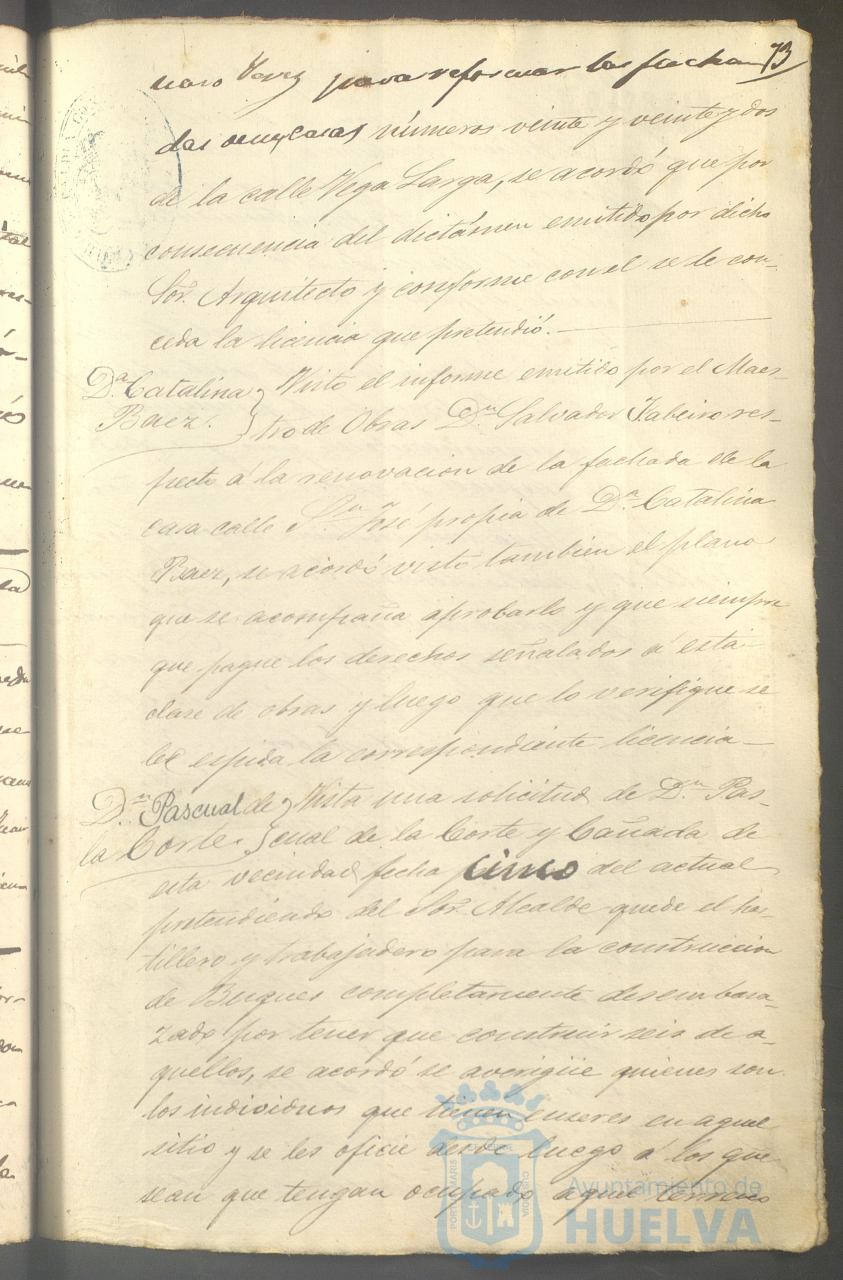 73
para reformar las facha-
das de sus casas números veinte y veinte y dos
de la calle Vega Larga, se acordó que por
consecuencia del dictámen emitido por dicho
Sor. Arquitecto y conforme con el se le con-
ceda la licencia que pretendió.
Da. Catalina
Baez.
Visto el informe emitido por el Maes-
tro de Obras Dn. Salvador res-
pecto á la renovacion de la fachada de la
casa calle Sn. José propia de Da. Catalina
Baez, se acordó visto tambien el plano
que se acompaña aprobarlo y que siempre
que pague los derechos señalados á esta
clase de obras y luego que lo verifique se
le espida la correspondiente licencia
Dn. Pascual de
la Corte.
Vista una solicitud de Dn. Pas-
cual de la Corte y Cañada de
esta vecindad fecha cinco del actual
pretendiendo del Sor. Alcalde quede el has-
tillero y trabajadero para la construccion
de Buques completamente desembara-
zado por tener que construir seis de a-
quellos, se acordó se averigüe quienes son
los individuos que tienen enseres en aquel
sitio y se les oficie desde luego á los que
sean que tengan ocupado aquel terreno
PORTUS MARIS
CUSTODIA
Ayuntamiento de
HUELVA